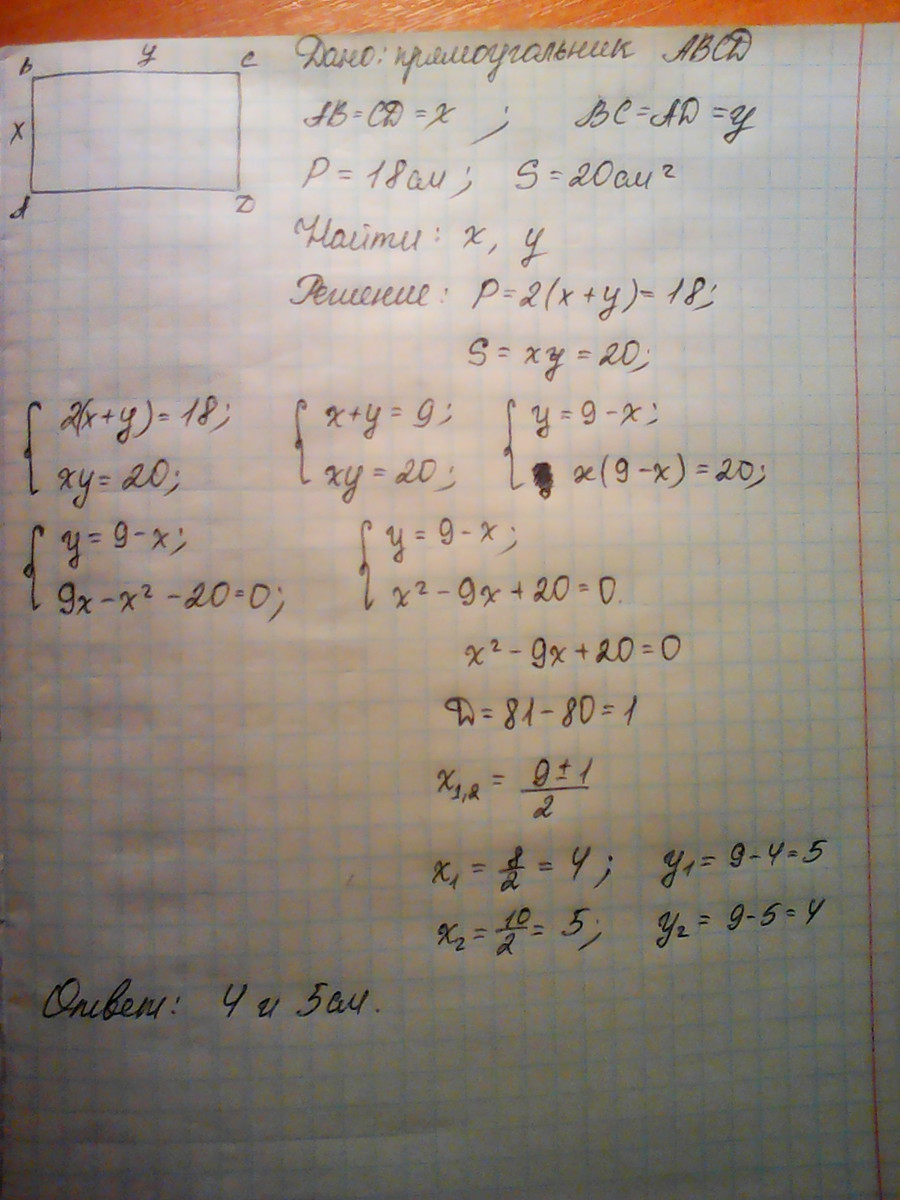 B y C Дано: прямоугольник ABCD
x AB=CD=x ; BC=AD=y
A D P=18см; S=20см²
Найти: x, y
Решение: P=2(x+y)=18;
S=xy=20;
{ 2(x+y)=18; { x+y=9; { y=9-x;
xy=20; xy=20; x(9-x)=20;
{ y=9-x; { y=9-x;
9x-x²-20=0; x²-9x+20=0.
x²-9x+20=0
D=81-80=1
x₁,₂ = (9±1)/2
x₁ = 8/2 = 4; y₁ = 9-4=5
x₂ = 10/2 = 5; y₂ = 9-5=4
Ответ: 4 и 5см.